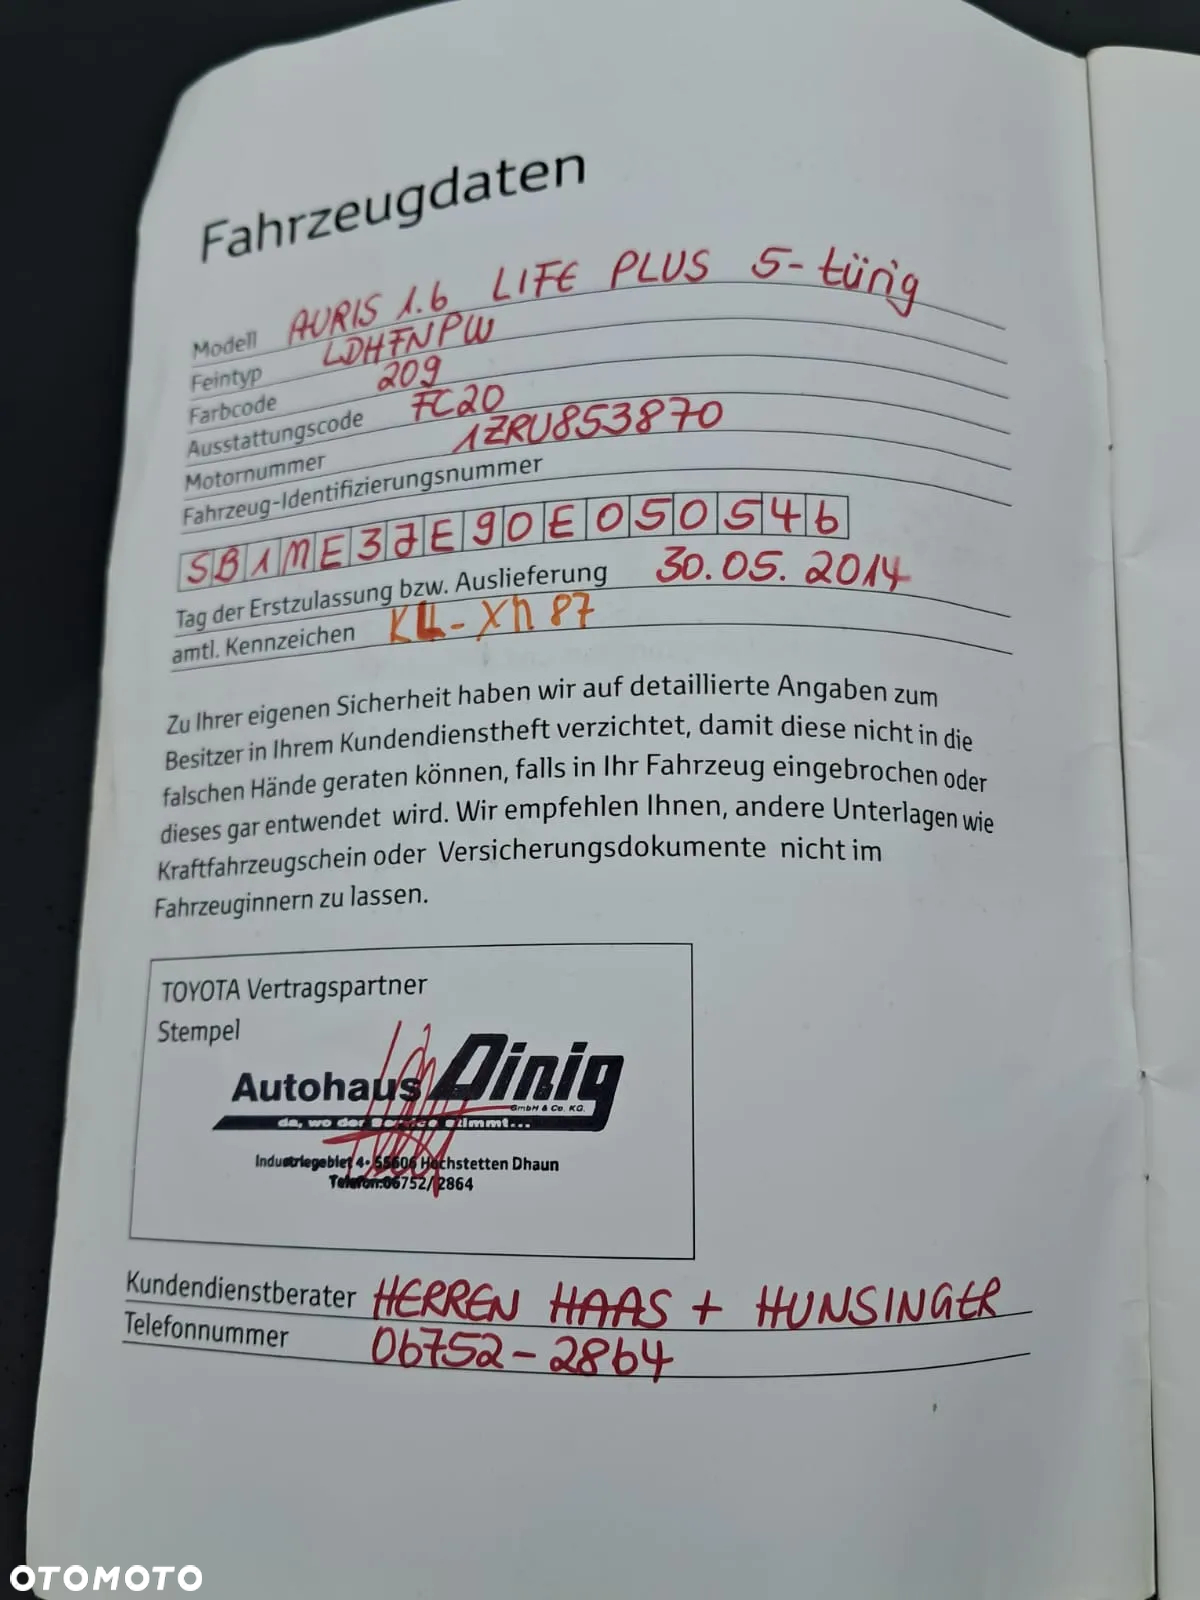 Fahrzeugdaten
Modell AURIS 1.6 LIFE PLUS 5-türig
Feintyp LDHFNPW
Farbcode 209
Ausstattungscode FC20
Motornummer 1ZRU853870
Fahrzeug-Identifizierungsnummer
SB1ME3JE90E050546
Tag der Erstzulassung bzw. Auslieferung 30.05.2014
amtl. Kennzeichen 87
Zu Ihrer eigenen Sicherheit haben wir auf detaillierte Angaben zum
Besitzer in Ihrem Kundendienstheft verzichtet, damit diese nicht in die
falschen Hände geraten können, falls in Ihr Fahrzeug eingebrochen oder
dieses gar entwendet wird. Wir empfehlen Ihnen, andere Unterlagen wie
Kraftfahrzeugschein oder Versicherungsdokumente nicht im
Fahrzeuginnern zu lassen.
TOYOTA Vertragspartner
Stempel
Autohaus Dinig
GmbH & Co. KG.
da, wo der Service stimmt...
Industriegebiet 4 • 55606 Hochstetten Dhaun
Telefon:06752/2864
Kundendienstberater HERREN HAAS + HUNSINGER
Telefonnummer 06752-2864
OTOMOTO